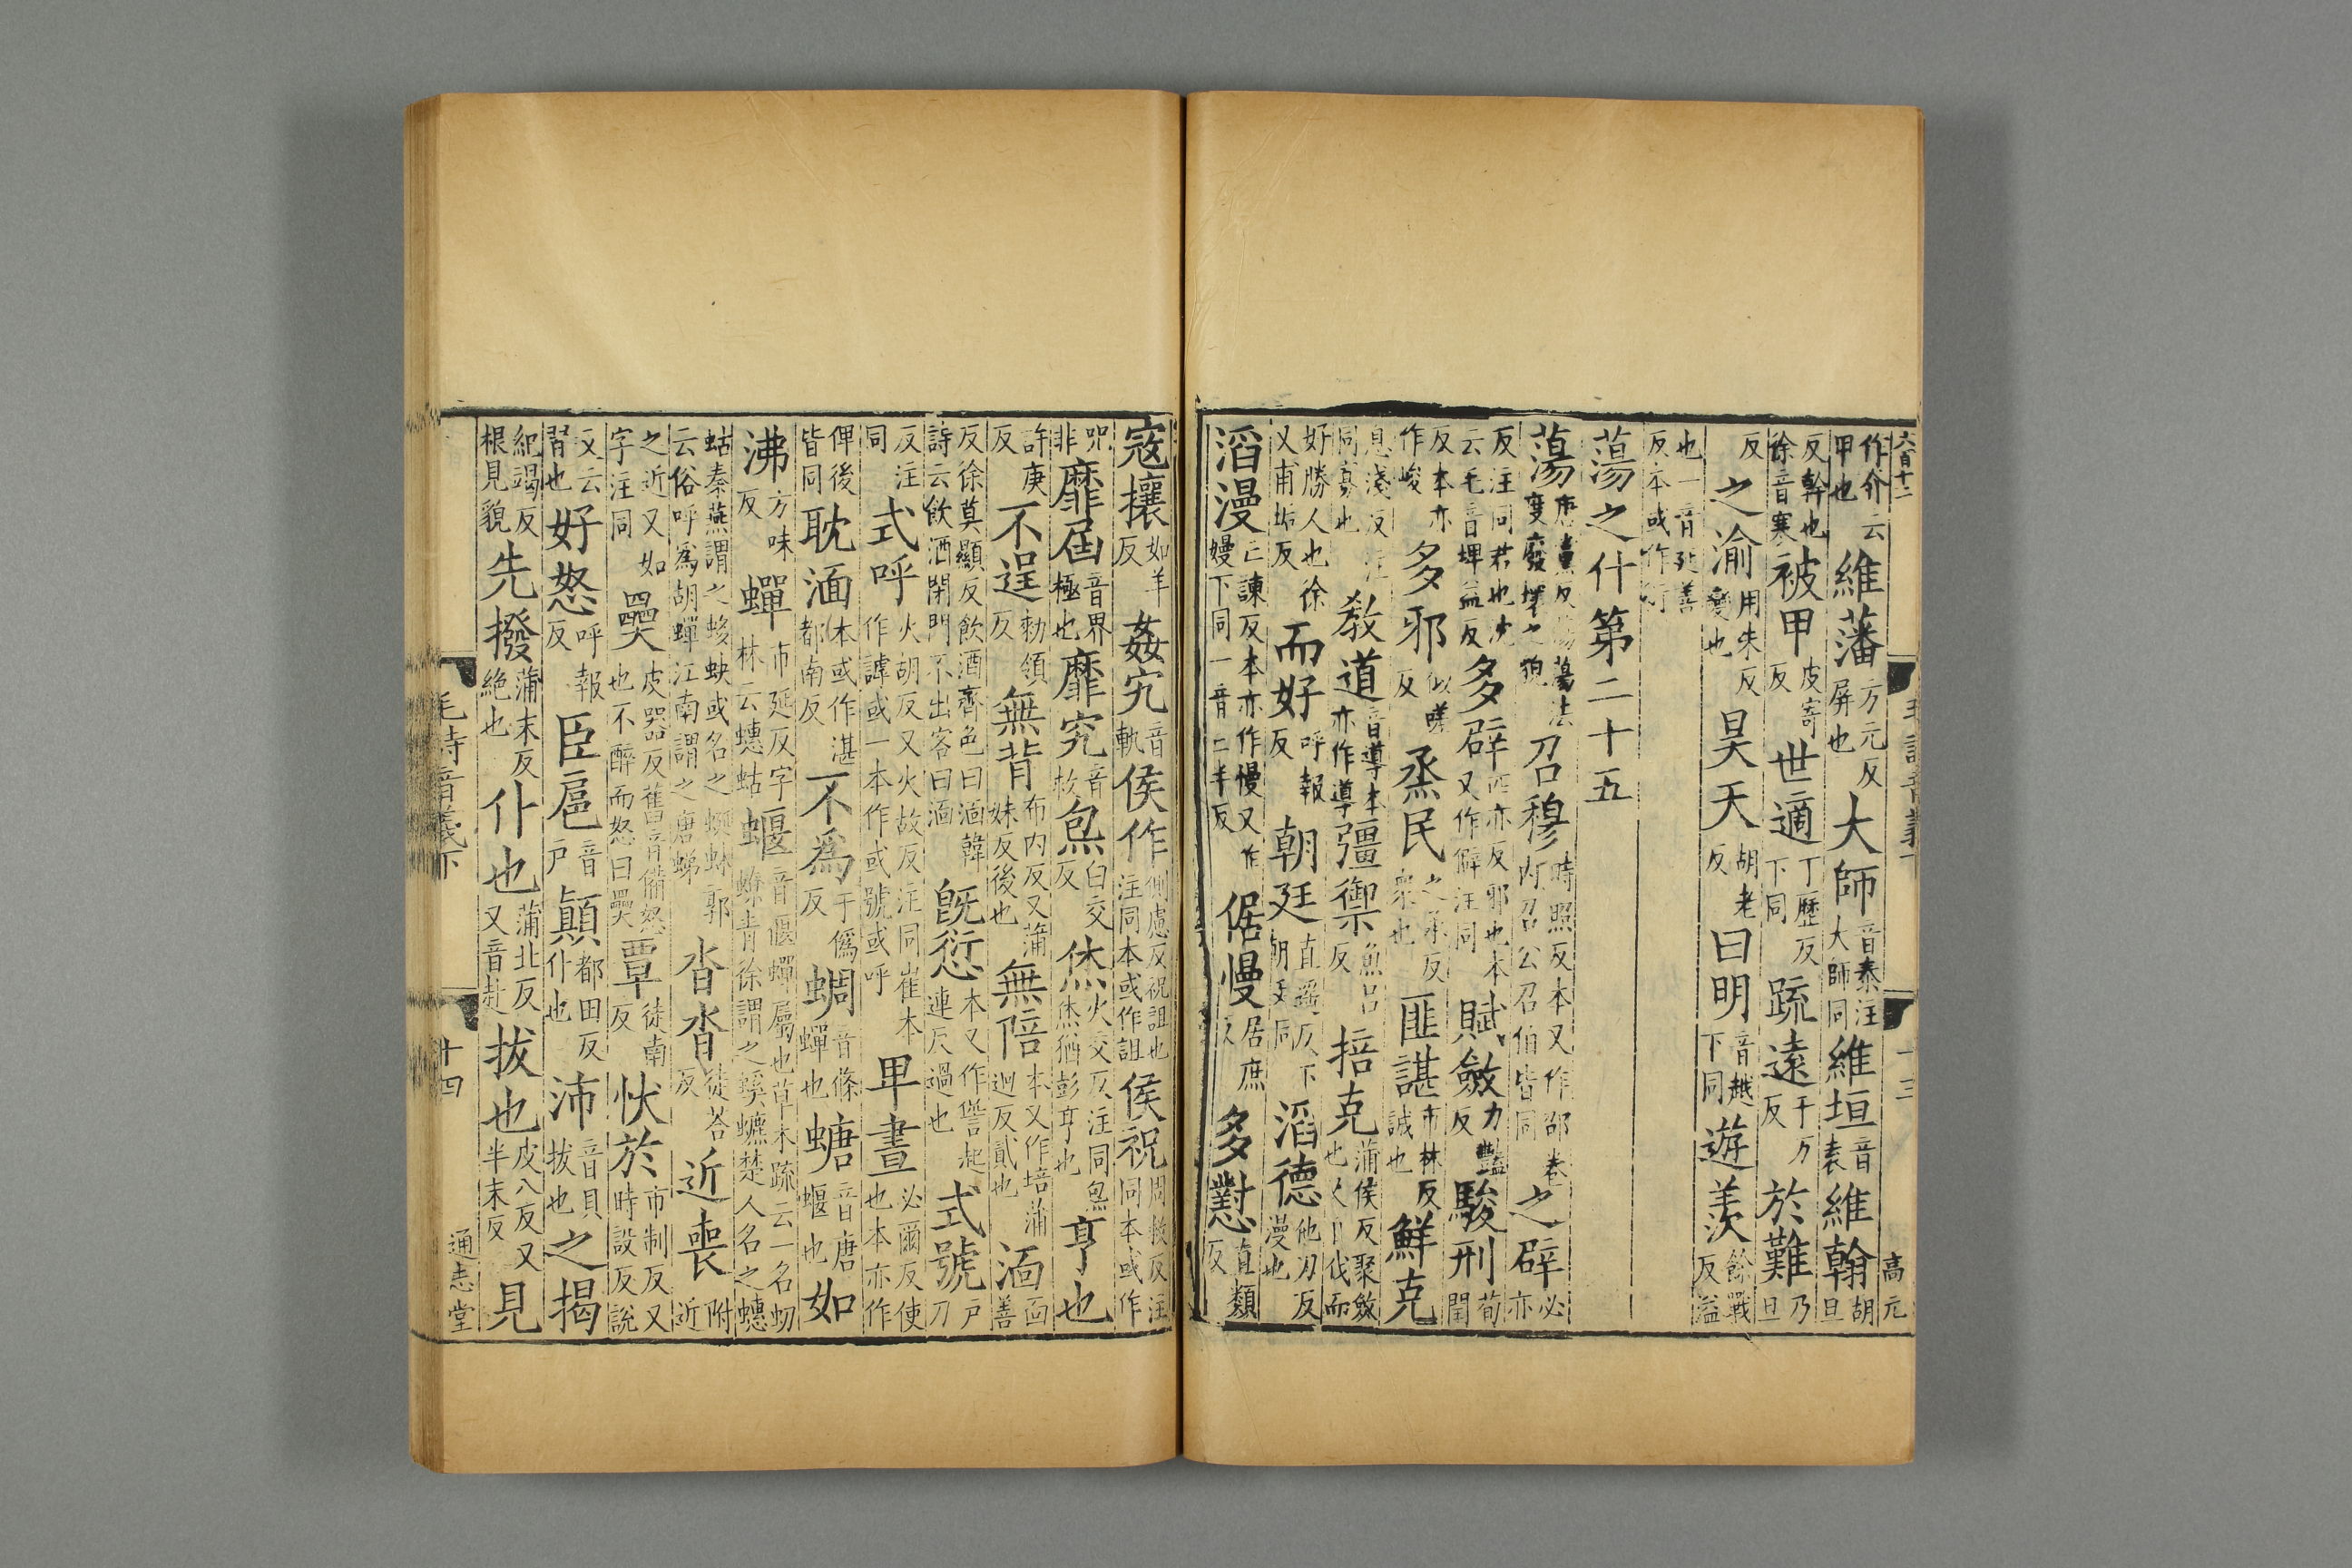 作介云甲也維藩方元反屏也大師音泰注大師同維垣音表維翰胡旦
反幹也徐音寒被甲皮寄反世適丁歷反下同疏遠于万反於難乃旦
反之渝用朱反變也昊天胡老反曰明音越下同遊羨餘戰反溢
也一音延善反本或作衍
蕩之什第二十五
蕩唐黨反蕩蕩法度廢壞之貌召穆時照反本又作邵卷內召公召伯皆同之辟必亦
反注同君也沈云毛音婢益反多辟匹亦反邪也本又作僻注同賦斂力豔反駿刑荀閏
反本亦作峻多邪似嗟反烝民之承反衆也匪諶市林反誠也鮮克
息淺反注同寡也教道音導本亦作導彊禦魚呂反掊克蒲侯反聚斂也又自伐而
好勝人也徐又甫垢反而好呼報反朝廷直遥反下朝廷同滔德他刀反漫也
滔漫亡諫反本亦作慢又作嫚下同一音二半反倨慢居庶反多懟直類反
寇攘如羊反姦宄音軌侯作側慮反祝詛也注同本或作詛侯祝周救反注同本或作
呪非靡屆音界極也靡究音救炰白交反烋火交反注同炰烋猶彭亨也亨也
許庚反不逞勑領反無背布內反又蒲妹反後也無陪本又作培蒲迴反貳也湎面善
反徐莫顯反飲酒齊色曰湎韓詩云飲酒閉門不出客曰湎旣愆本又作諐起連反過也式號户刀
反注同式呼火胡反又火故反注同崔本作謼或一本作或號或呼卑晝必爾反使也本亦作
俾後皆同耽湎本或作湛都南反不爲于僞反蜩音條蟬也螗音唐蝘也如
沸方味反蟬市延反字林云蟪蛄蝘音偃蟬屬也草木疏云一名蚻蟧青徐謂之螇螰楚人名之蟪
蛄秦燕謂之蛥蚗或名之蜓蚞郭云俗呼爲胡蟬江南謂之螗蛦沓沓徒荅反近喪附近
之近又如字注同奰皮器反舊音備怒也不醉而怒曰奰覃徒南反忕於市制反又時設反説
文云習也好怒呼報反臣扈音户顛都田反仆也沛音貝拔也之揭
紀竭反根見貌先撥蒲末反絶也仆也蒲北反又音赴拔也皮八反又半末反見
毛詩音義下
十四
通志堂
六百十二
毛詩音義下
十三
高元